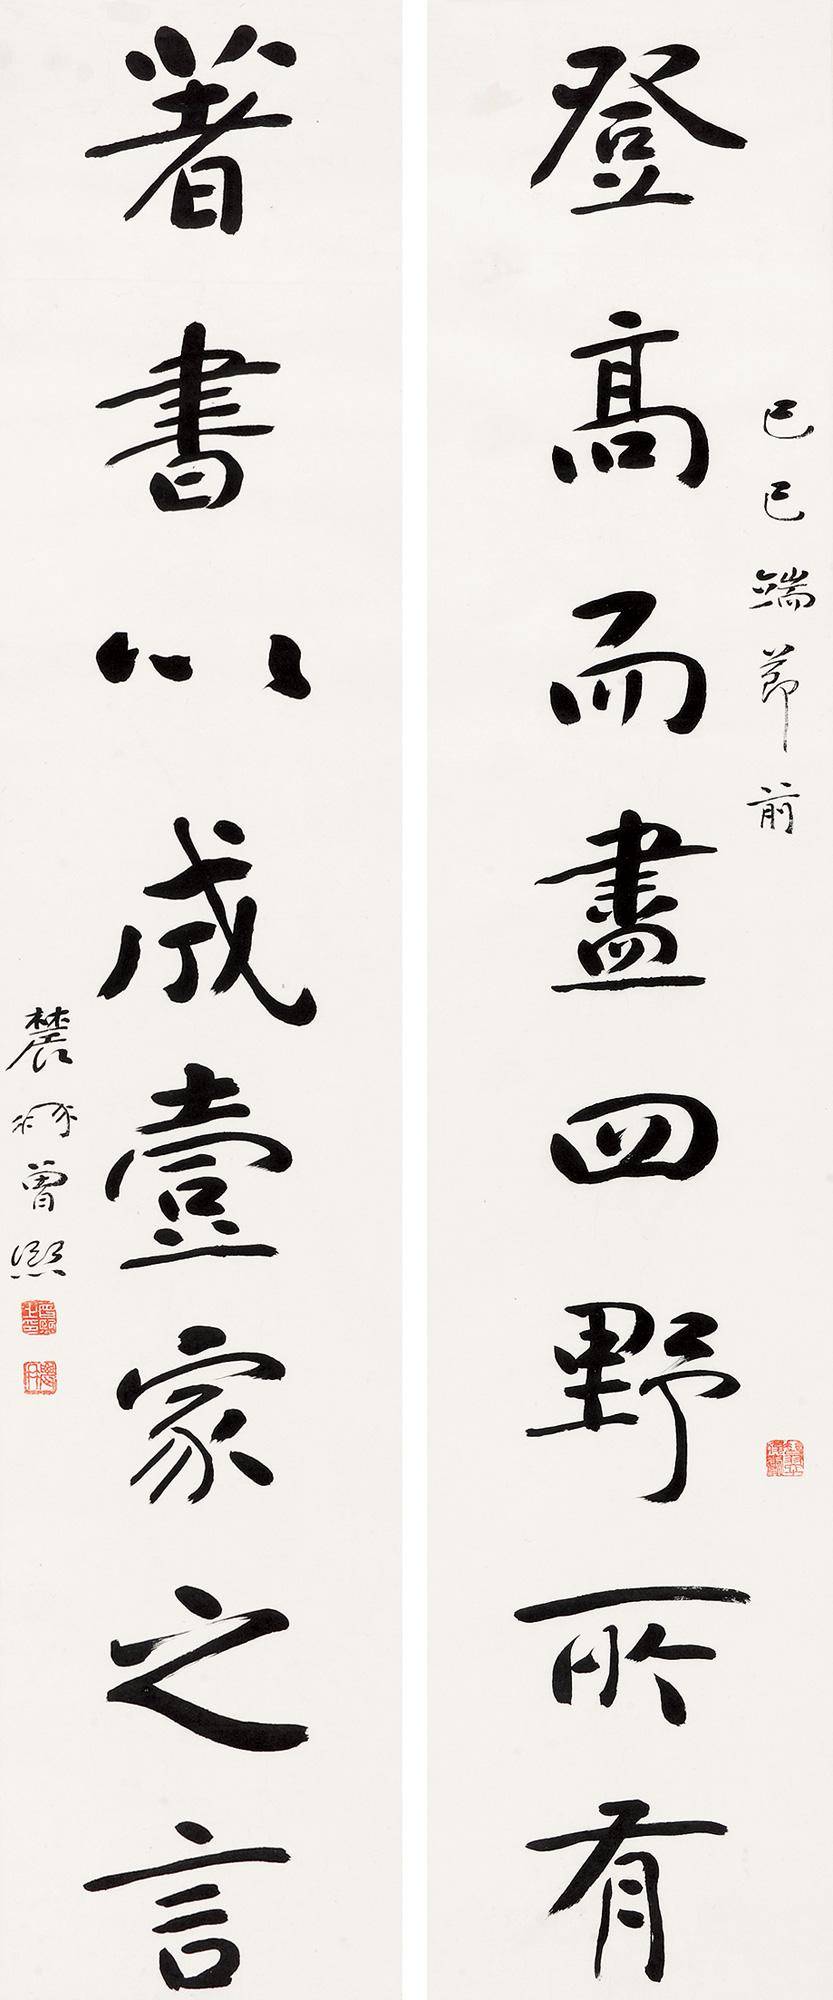 己巳端節前
登高而盡四野所有
著書以成壹家之言
農髯曾熙